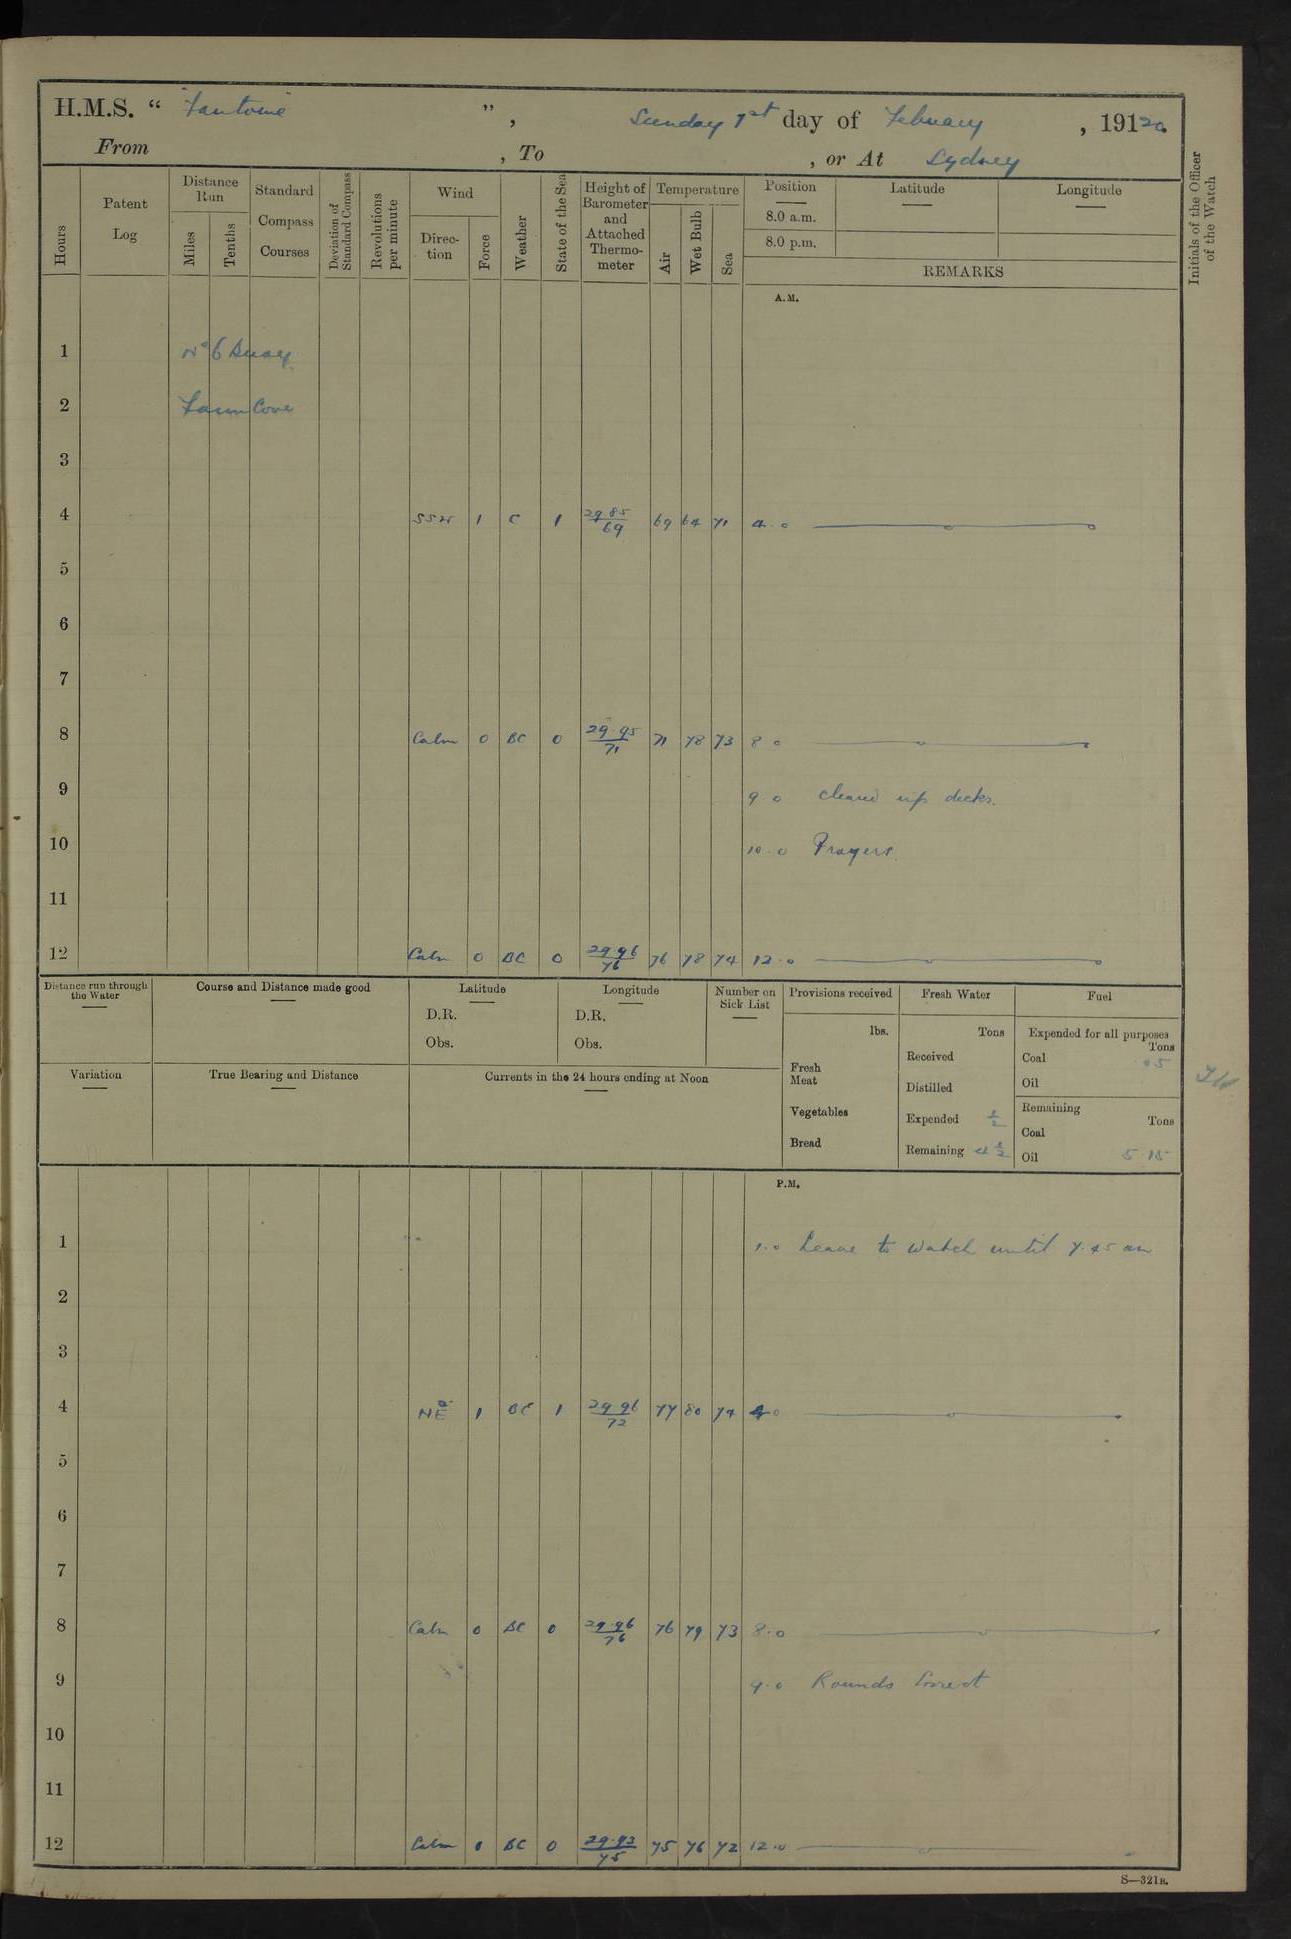 H.M.S. “ Fantome ” , Sunday 1st day of February , 19120
From , To , or At Sydney
Hours
Patent Log
Distance Run
Miles
Tenths
Standard Compass Courses
Deviation of Standard Compass
Revolutions per minute
Wind
Direction
Force
Weather
State of the Sea
Height of Barometer and Attached Thermometer
Temperature
Air
Wet Bulb
Sea
Position
8.0 a.m.
8.0 p.m.
Latitude
Longitude
REMARKS
Initials of the Officer of the Watch
A.M.
1 No 6 Buoy
2 Farm Cove
3
4 SSW 1 C 1 29 85/69 69 64 71 4.0
5
6
7
8 Calm 0 BC 0 29.95/71 71 78 73 8 0
9 9 0 cleaned up decks.
10 10.0 Prayers.
11
12 Calm 0 BC 0 29 96/76 76 78 74 12.0
Distance run through the Water
Course and Distance made good
Latitude
D.R.
Obs.
Longitude
D.R.
Obs.
Number on Sick List
Provisions received
lbs.
Fresh Meat
Vegetables
Bread
Fresh Water
Tons
Received
Distilled
Expended 1/2
Remaining 4 1/2
Fuel
Expended for all purposes
Tons
Coal .5
Oil
Remaining
Tons
Coal
Oil 5.15
Variation
True Bearing and Distance
Currents in the 24 hours ending at Noon
P.M.
1 1.0 Leave to watch until 7.45 am
2
3
4 NE 1 BC 1 29 96/72 77 80 74 4 0
5
6
7
8 Calm 0 BC 0 29.96/76 76 79 73 8.0
9 9.0 Rounds Correct
10
11
12 Calm 0 BC 0 29.93/75 75 76 72 12.0
S—321B.